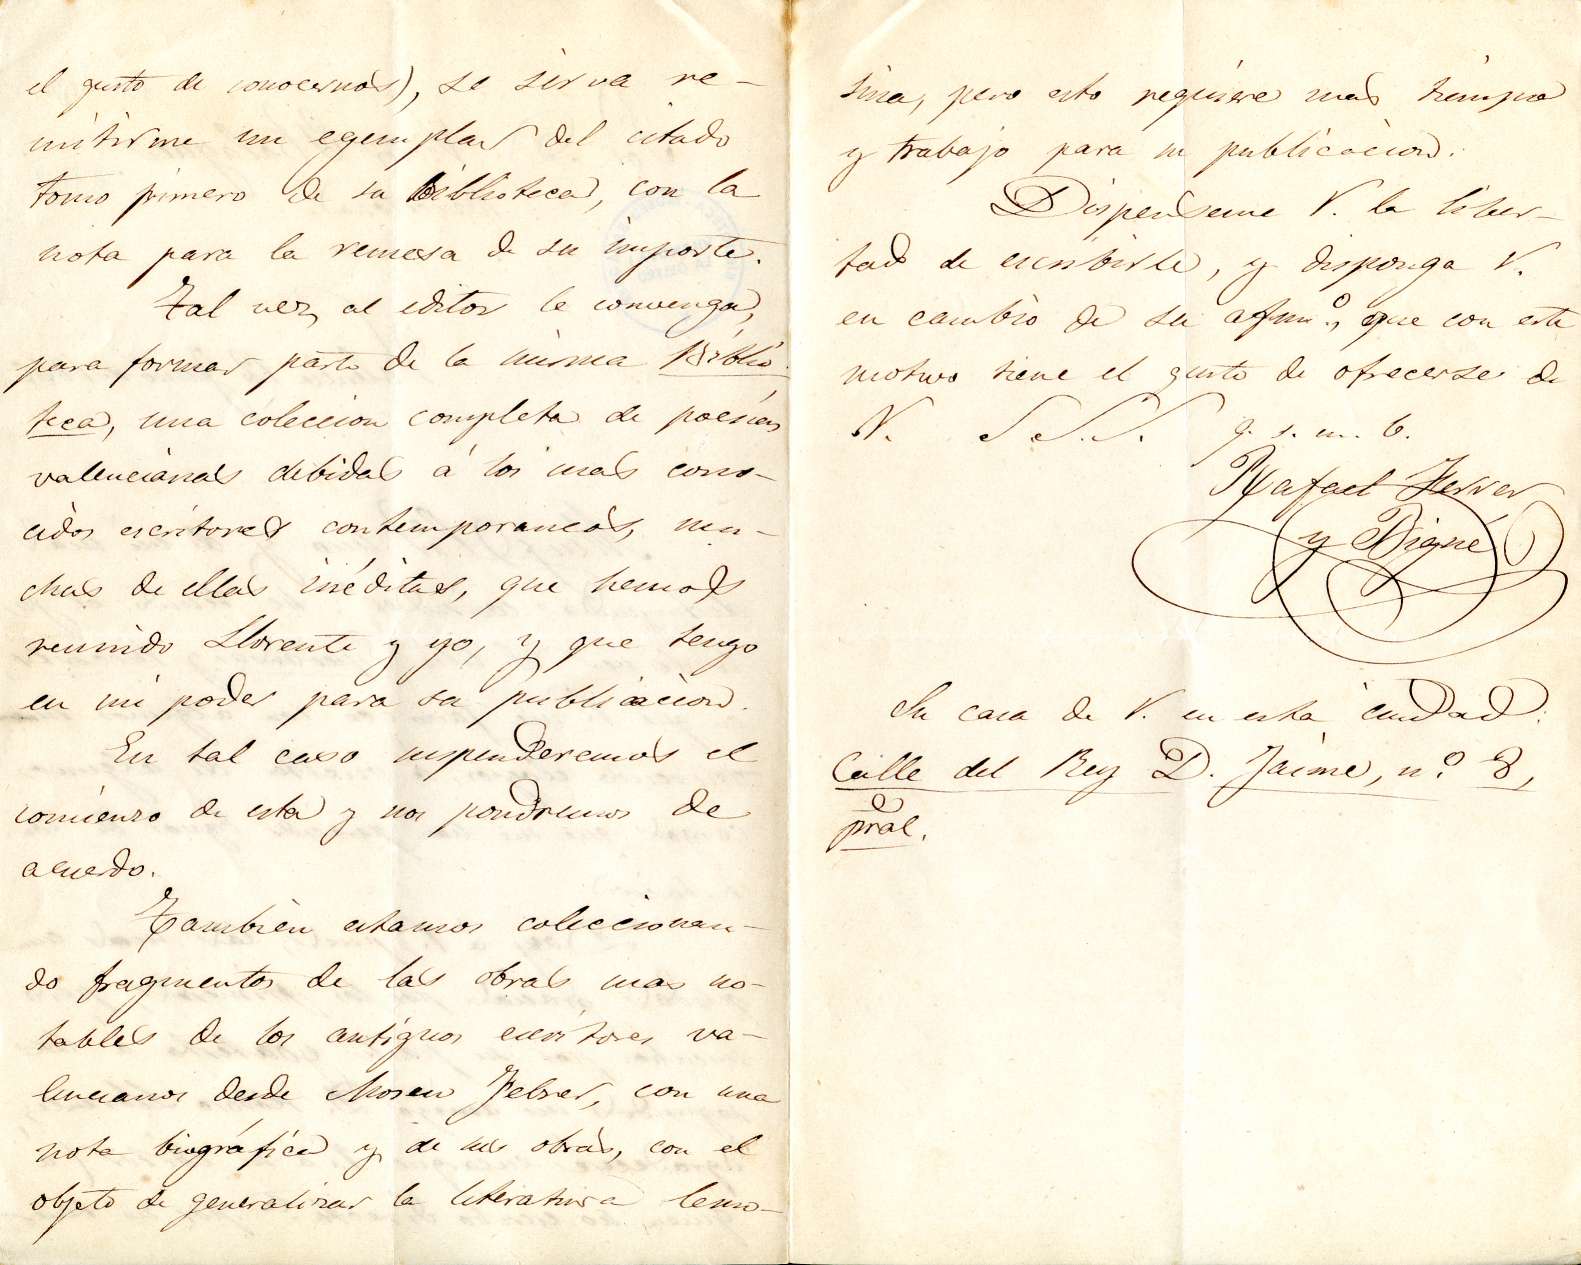 el gusto de conocernos), se sirva re-
mitirme un egemplar del citado
tomo primero de su biblioteca, con la
nota para la remesa de su importe.
Tal vez al editor le convenga,
para formar parte de la misma Biblio-
teca, una coleccion completa de poesias
valencianas debidas á los mas cono-
cidos escritores contemporaneos, mu-
chas de ellas inéditas, que hemos
reunido Llorente y yo, y que tengo
en mi poder para su publicacion.
En tal caso suspenderemos el
comienzo de esta y nos pondremos de
acuerdo.
Tambien estamos coleccionan-
do fragmentos de las obras mas no-
tables de los antiguos escritores va-
lencianos desde Mosen Febrer, con una
nota biográfica y de sus obras, con el
objeto de generalizar la literatura lemo-
sina, pero esto requiere mas tiempo
y trabajo para su publicacion.
Dispenseme V. la liber-
tad de escribirle, y disponga V.
en cambio de su afmo., que con este
motivo tiene el gusto de ofrecerse de
V. S.S.S. q. s. m. b.
Rafael Ferrer
y Bigné
Su casa de V. en esta ciudad:
Calle del Rey D. Jaime, n.º 8,
pral.